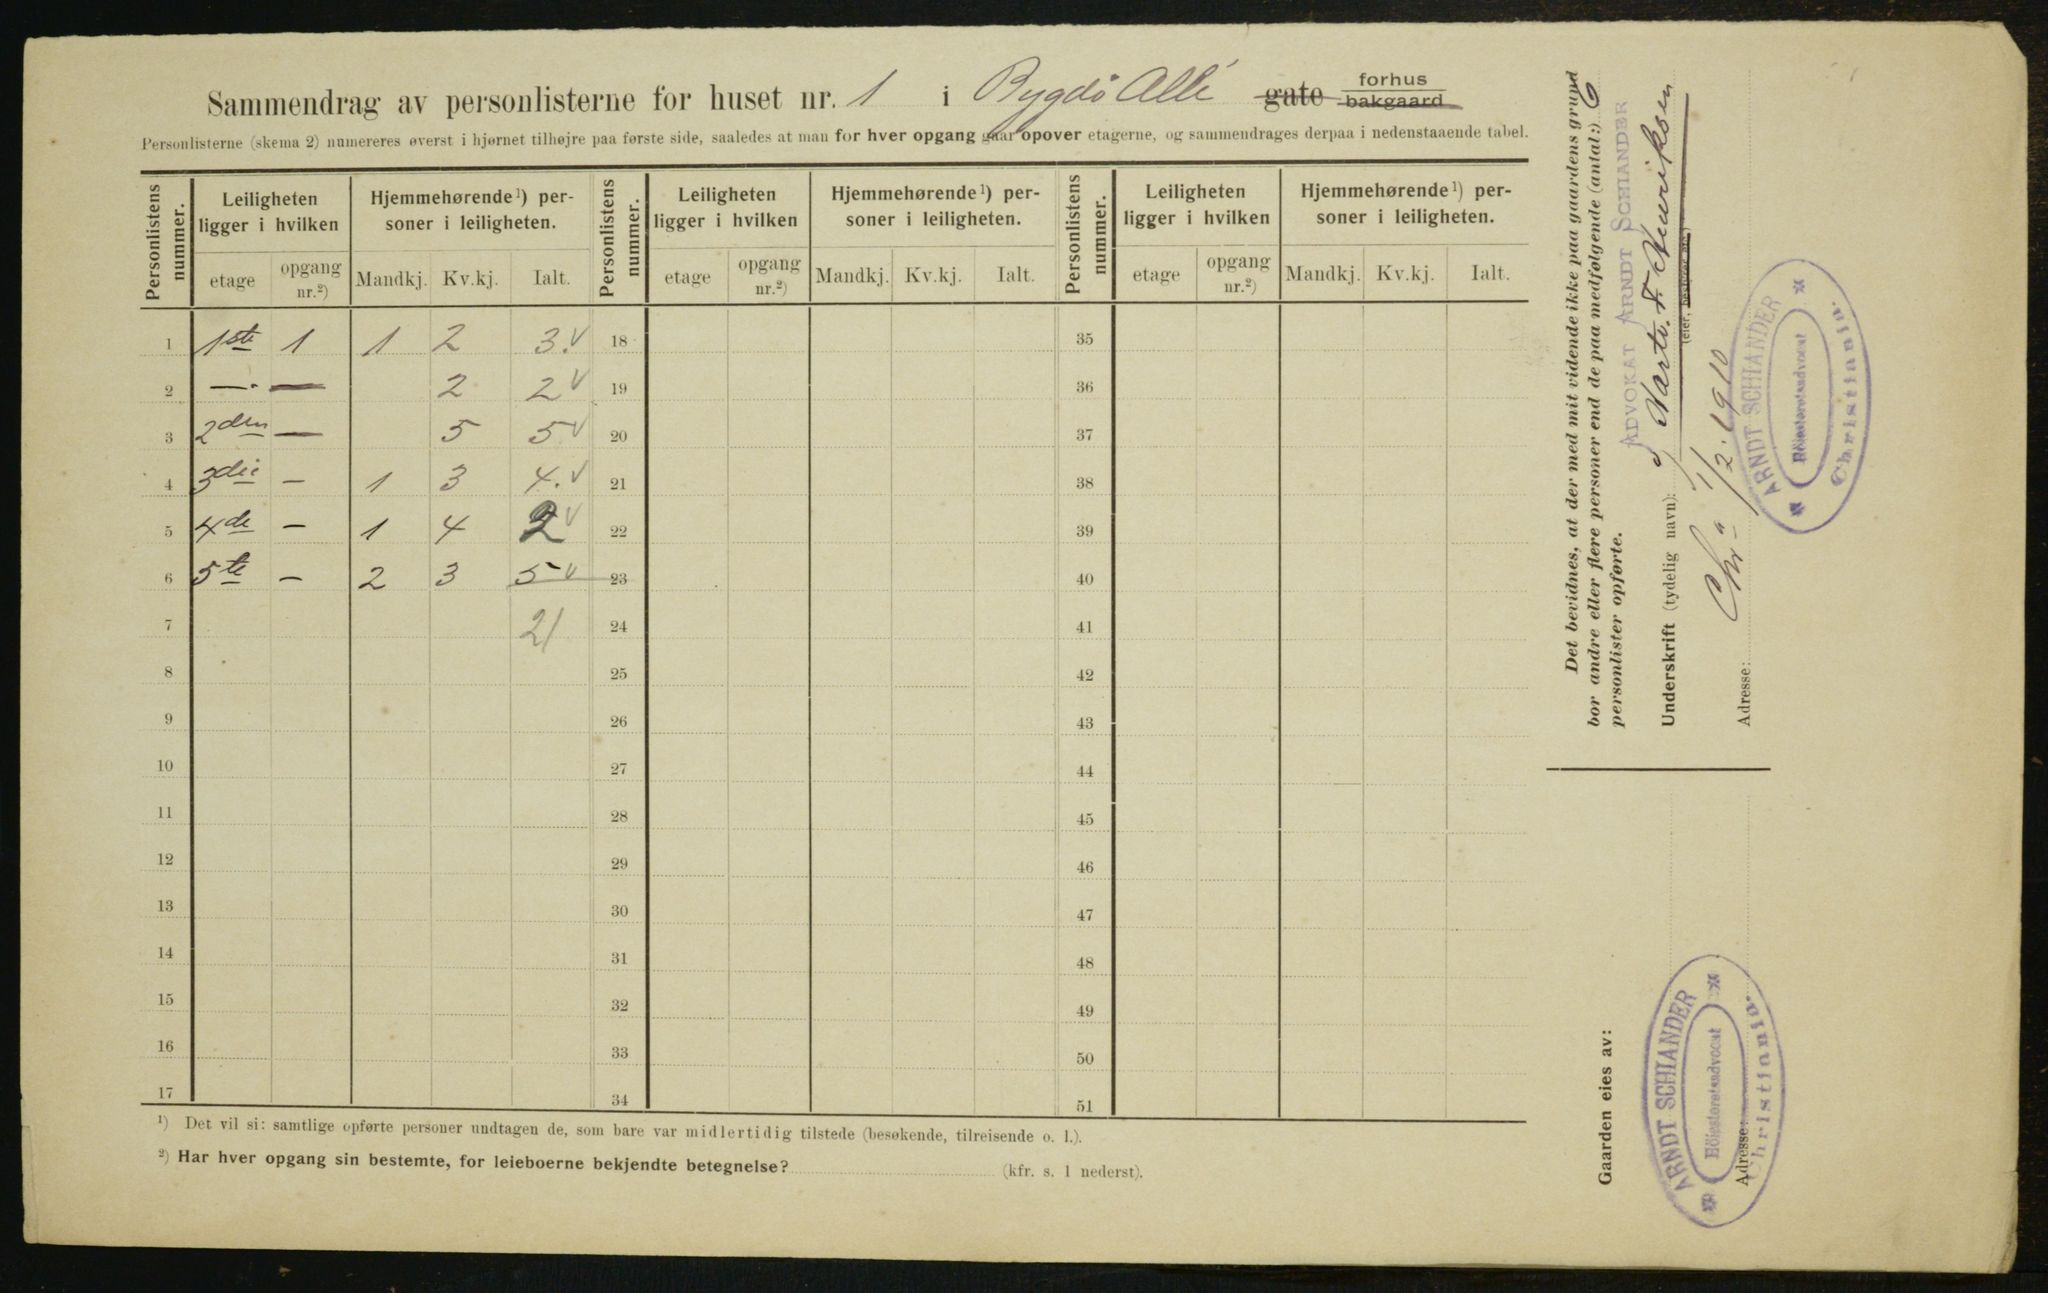 Sammendrag av personlisterne for huset nr. 1 i Bygdö Allé gate forhus bakgaard
Personlisterne (skema 2) numereres øverst i hjørnet tilhøjre paa første side, saaledes at man for hver opgang gaar opover etagerne, og sammendrages derpaa i nedenstaaende tabel.
Personlistens nummer. Leiligheten ligger i hvilken Hjemmehørende ¹) personer i leiligheten. Personlistens nummer. Leiligheten ligger i hvilken Hjemmehørende ¹) personer i leiligheten. Personlistens nummer. Leiligheten ligger i hvilken Hjemmehørende ¹) personer i leiligheten.
etage opgang nr.²) Mandkj. Kv.kj. Ialt. etage opgang nr.²) Mandkj. Kv.kj. Ialt. etage opgang nr.²) Mandkj. Kv.kj. Ialt.
1 1ste 1 1 2 3. v 18 35
2 —. — 2 2 v 19 36
3 2den — 5 5 v 20 37
4 3die — 1 3 4. v 21 38
5 4de — 1 4 2 v 22 39
6 5te — 2 3 5 v 23 40
7 21 24 41
8 25 42
9 26 43
10 27 44
11 28 45
12 29 46
13 30 47
14 31 48
15 32 49
16 33 50
17 34 51
¹) Det vil si: samtlige opførte personer undtagen de, som bare var midlertidig tilstede (besøkende, tilreisende o. l.).
²) Har hver opgang sin bestemte, for leieboerne bekjendte betegnelse? (kfr. s. 1 nederst).
Det bevidnes, at der med mit vidende ikke paa gaardens grund
bor andre eller flere personer end de paa medfølgende (antal:) 6
personlister opførte.
ADVOKAT ARNDT SCHIANDER
Underskrift (tydelig navn):
(eier, bestyrer etc.)
Chr.a 1/2. 1910
Adresse:
ARNDT SCHIANDER
Höiesteretsadvocat
Christiania.
Gaarden eies av:
ARNDT SCHIANDER
Höiesteretsadvocat
Christiania.
Adresse: